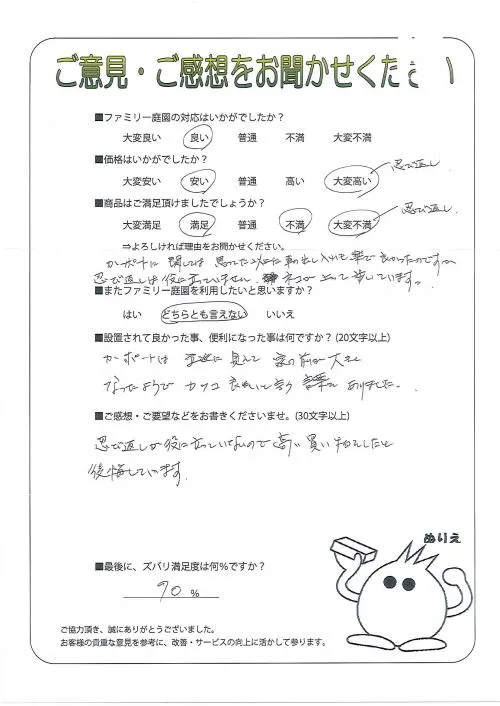 ご意見・ご感想をお聞かせください
■ファミリー庭園の対応はいかがでしたか？
大変良い 良い 普通 不満 大変不満
■価格はいかがでしたか？
大変安い 安い 普通 高い 大変高い 忍び返し
■商品はご満足頂けましたでしょうか？
大変満足 満足 普通 不満 大変不満 忍び返し
⇒よろしければ理由をお聞かせください。
カーポートに関しては思ってた以上に車の出し入れも楽で良かったのですが
忍び返しは役に立っていません。ネコが上って歩いています。
■またファミリー庭園を利用したいと思いますか？
はい どちらとも言えない いいえ
■設置されて良かった事、便利になった事は何ですか？(20文字以上)
カーポートは 見えて 家の前が大きく
なったようで カッコ良 言う ありました。
■ご感想・ご要望などをお書きくださいませ。(30文字以上)
忍び返しが役に立っていないので高い買い物をしたと
後悔しています。
ぬりえ
■最後に、ズバリ満足度は何%ですか？
90 %
ご協力頂き、誠にありがとうございました。
お客様の貴重な意見を参考に、改善・サービスの向上に活かして参ります。